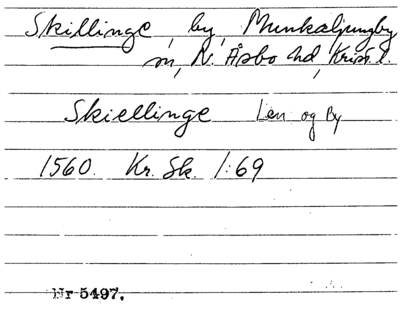 Skillinge, by, Munkaljungby
sn, N. Åsbo hd, Krist. l.
Skiellinge Len og By
1560. Kr. Sk. 1:69
Nr 5497.